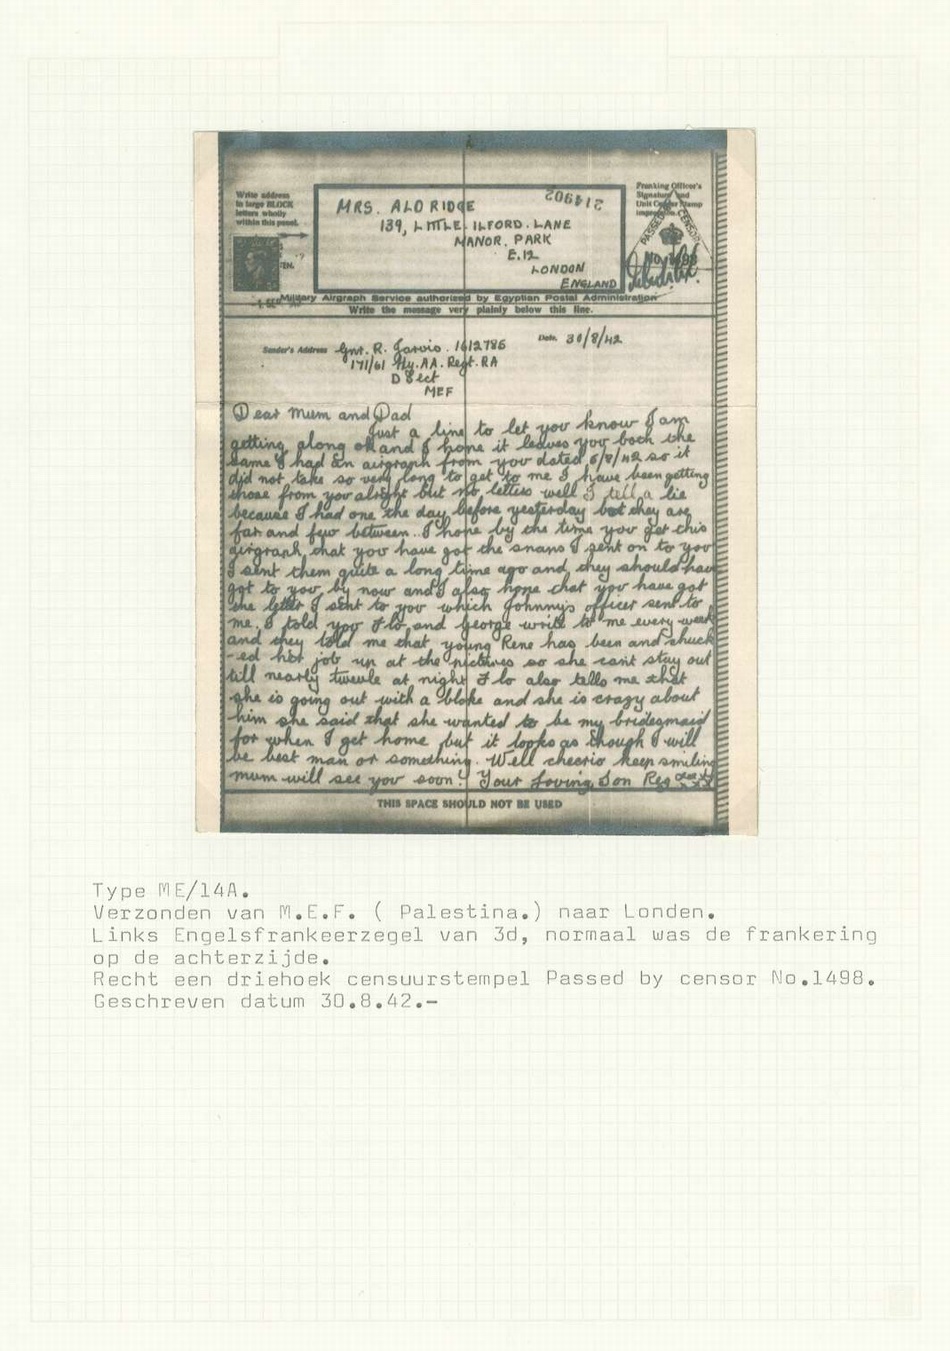 Write address
in large BLOCK
letters wholly
within this panel.
214902
MRS. ALDRIDGE
139, LITTLE. ILFORD. LANE
MANOR. PARK
E.12
LONDON
ENGLAND
Franking Officer's
Signature and
Unit Censor Stamp
PASSED CENSOR
No.
Military Airgraph Service authorized by Egyptian Postal Administration
Write the message very plainly below this line.
Sender's Address Gnr. R. Jarvis. 1612786
Date. 30/8/42
171/61 Hy. AA. Regt. RA
D Sect
MEF
Dear Mum and Dad
Just a line to let you know I am
getting along ok and I hope it leaves you both the
same I had an airgraph from you dated 6/8/42 so it
did not take so very long to get to me I have been getting
those from you alright but no letters well I tell a lie
because I had one the day before yesterday but they are
far and few between.. I hope by the time you get this
airgraph that you have got the snaps I sent on to you
I sent them quite a long time ago and they should have
got to you by now and I also hope that you have got
the letter I sent to you which Johnny's officer sent to
me. I told you Flo and George write to me every week
and they told me that young Rene has been and chuck
-ed her job up at the pictures so she cant stay out
till nearly twevle at night Flo also tells me that
she is going out with a bloke and she is crazy about
him she said that she wanted to be my bridesmaid
for when I get home but it looks as though I will
be best man or something. Well cheerio keep smiling
mum will see you soon! Your Loving Son Reg
THIS SPACE SHOULD NOT BE USED
Type ME/14A.
Verzonden van M.E.F. ( Palestina.) naar Londen.
Links Engelsfrankeerzegel van 3d, normaal was de frankering
op de achterzijde.
Recht een driehoek censuurstempel Passed by censor No.1498.
Geschreven datum 30.8.42.-